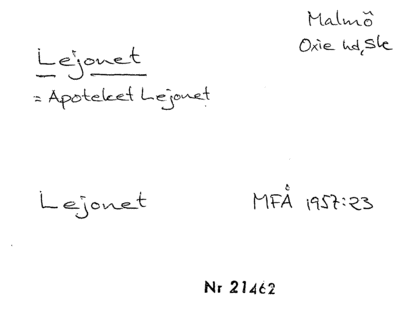 Malmö
Oxie hd, Sk
Lejonet
= Apoteket Lejonet
Lejonet MFÅ 1957:23
Nr 21462